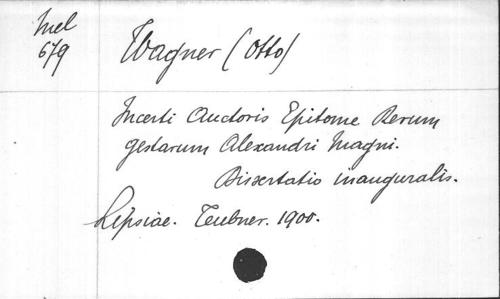 Mel
679
Wagner (Otto)
Incerti Auctoris Epitome Rerum
gestarum Alexandri Magni.
Dissertatio inauguralis.
Lipsiae. Teubner. 1900.